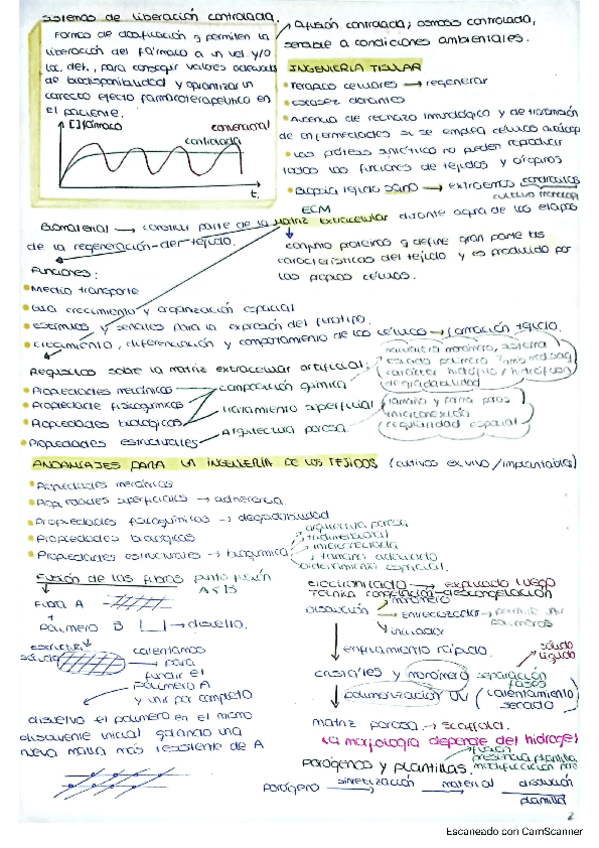 Sistemas de liberación controlada.
Formas de dosificación q permiten la
liberación del fármaco a un vel. y/o
loc. det., para conseguir valores adecuados
de biodisponibilidad y optimizar un
correcto efecto farmacoterapéutico en
el paciente.
[ ] fármaco
convencional
controlada
t.
Difusión controlada; osmosis controlada,
sensible a condiciones ambientales.
INGENIERIA TISULAR
Terapia celulares → regenerar
escasez donantes
Ausencia de rechazo inmunológico y de transmisión
de enfermedades si se emplea células
Las prótesis sintéticas no pueden reproducir
todas las funciones de tejidos y órganos
Biopsia tejido sano → extraemos condrocitos
cultivo
ECM
Biomaterial → construir parte de la matriz extracelular durante alguna de las etapas
de la regeneración del tejido.
conjunto proteínas q define gran parte las
características del tejido y es producido por
las propias células.
Funciones:
Medio transporte
Guía crecimiento y organización espacial
estímulos y señales para la expresión del fenotipo.
Crecimiento, diferenciación y comportamiento de las células → formación tejido.
Requisitos sobre la matriz extracelular artificial:
Propiedades mecánicas
Propiedade fisicoquímicas
Propiedades biológicas
Propiedades estructurales
composición química
tratamiento superficial
Arquitectura porosa
naturaleza monómero,
carácter hidrófilo/hidrófugo
degradabilidad
tamaño y forma poros
interconexión
regularidad espacial
ANDAMIAJES PARA LA INGENIERÍA DE LOS TEJIDOS (cultivos ex vivo/implantables)
Propiedades mecánicas
Propiedades superficiales → adherencia.
Propiedades fisicoquímicas → degradabilidad
Propiedades biológicas
Propiedades estructurales → bioquímica
arquitectura porosa
tridimensional
interconectada
tamaño adecuado
espacial.
Fusión de las fibras punto fusión
A ≠ B
FIBRA A
+
Polímero B → disuelto.
calentamos
para
fundir el
polímero A
y unir por completo
disuelvo el polímero en el mismo
disolvente inicial quedando una
nueva malla más resistente de A
electrohilado → explicado luego
Técnica congelación-descongelación
Disolución
monómero
entrecruzador → permite unir
polímeros
iniciador
enfriamiento rápido.
sólido
líquido
cristales y monómero separación
fases
polimerización UV (calentamiento
sellado
matriz porosa → scaffold.
La morfología depende del hidrogel
Porógenos y plantillas.
fusión
presencia plantilla
Porógeno → sinterización → material → disolución
plantilla
2
Escaneado con CamScanner